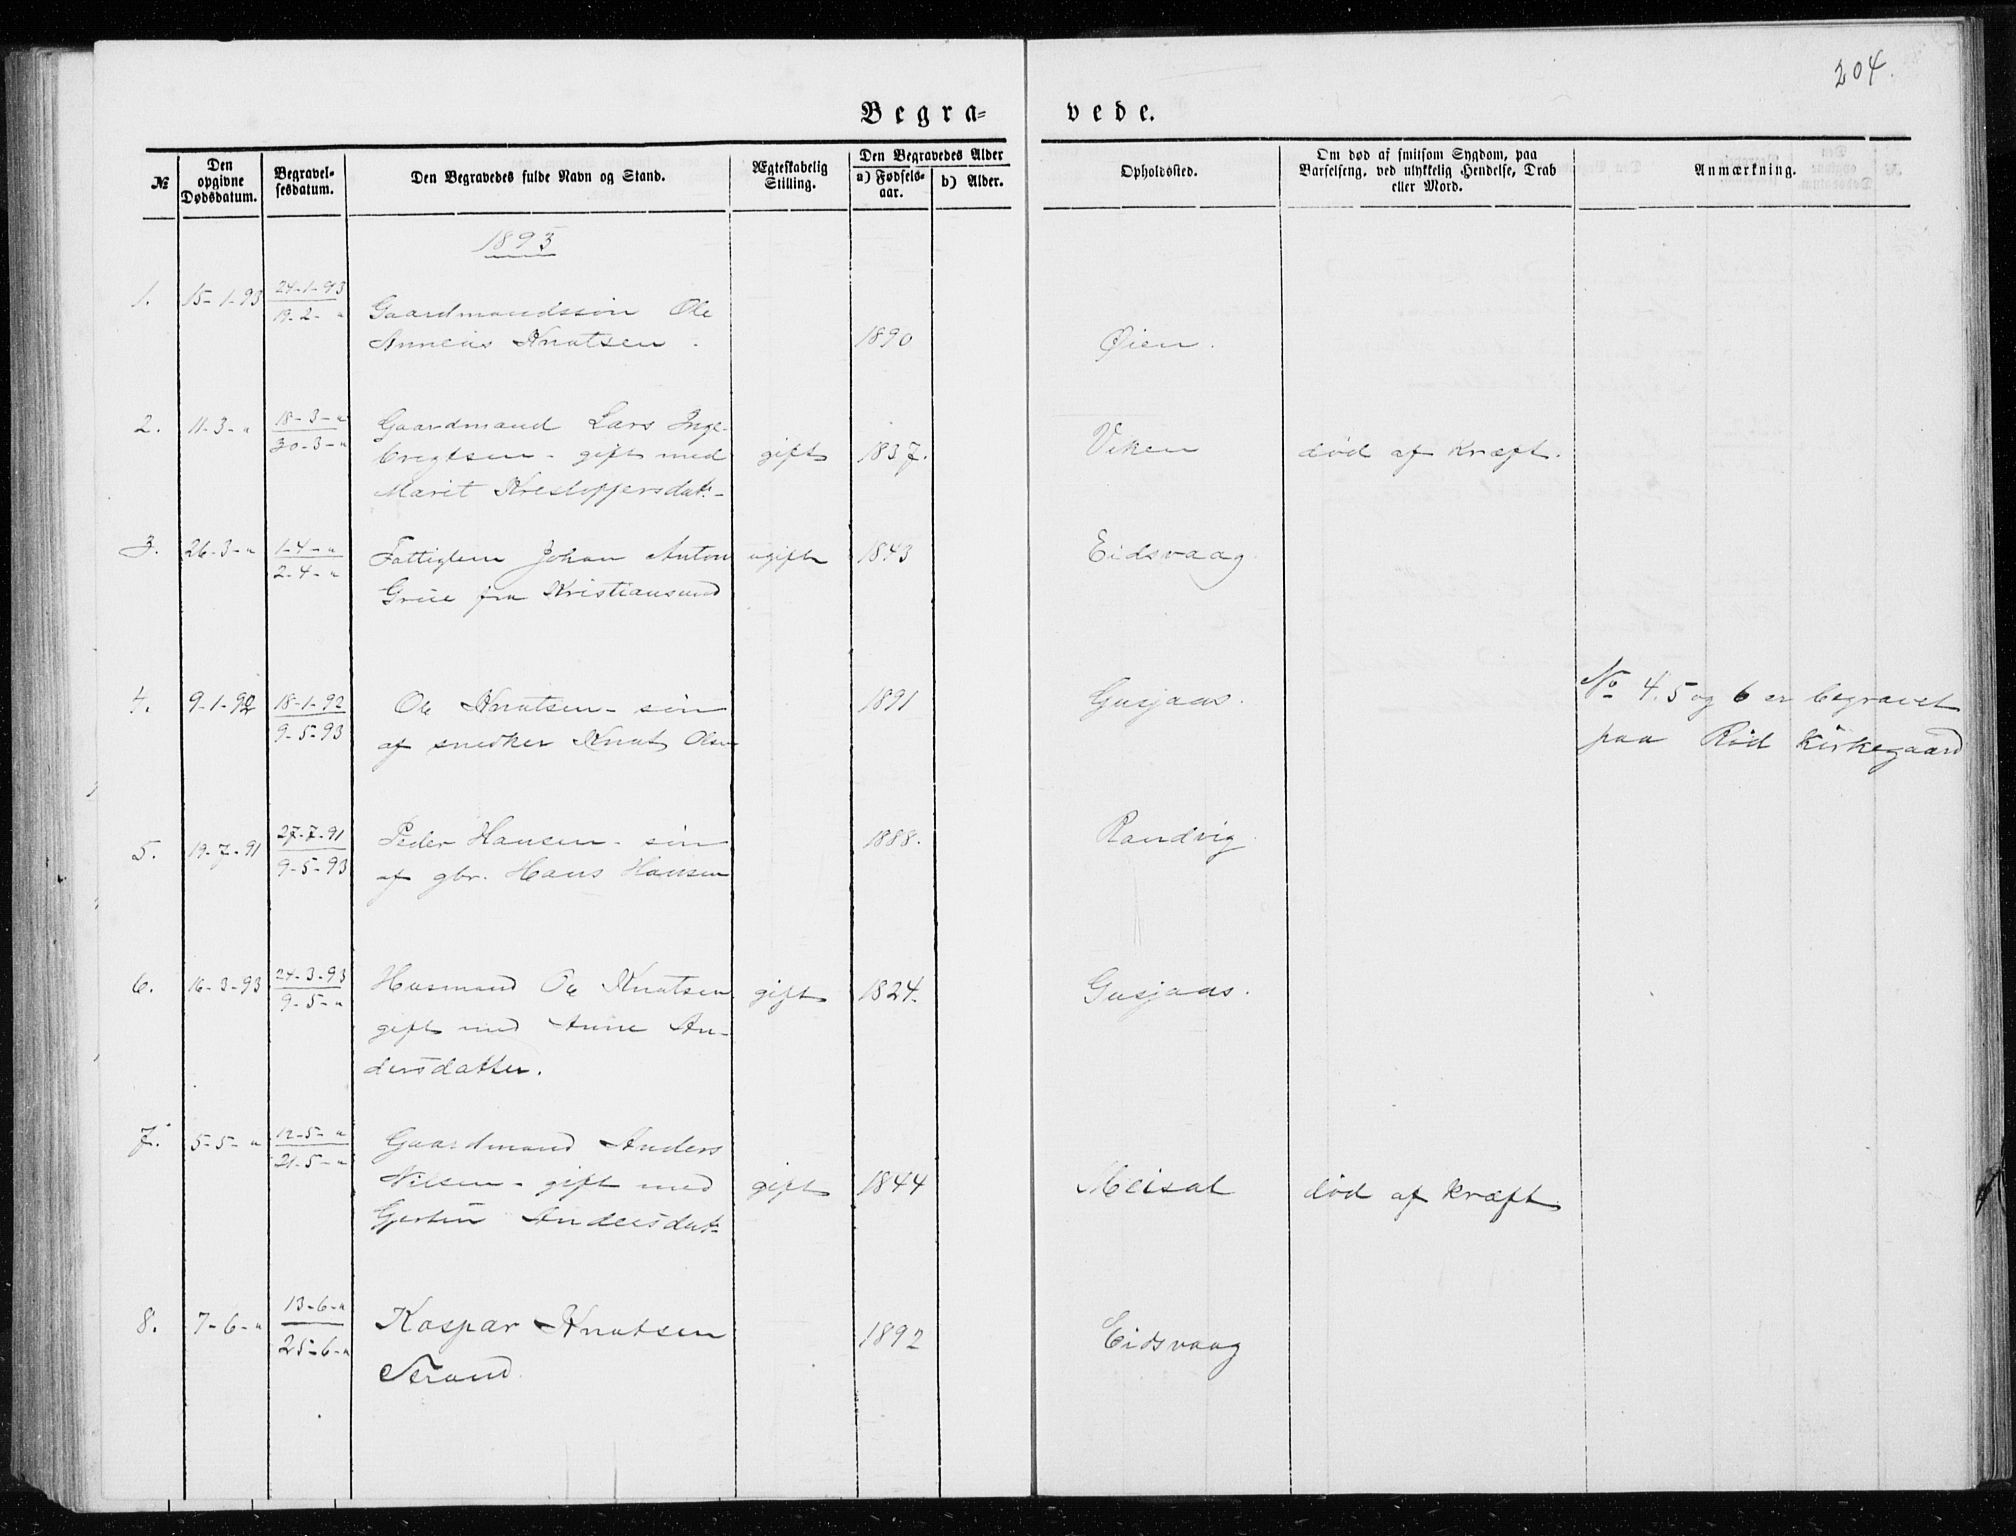 204.
Begra= vede.
№
Den opgivne Dødsdatum.
Begravel-sesdatum.
Den Begravedes fulde Navn og Stand.
Ægteskabelig Stilling.
Den Begravedes Alder
a) Fødsels-aar.
b) Alder.
Opholdssted.
Om død af smitsom Sygdom, paa Barselseng, ved ulykkelig Hendelse, Drab eller Mord.
Anmærkning.
1893
1. 15-1-93 24-1-93 Gaardmandssøn Ole
19-2-" Knutsen. 1890 Øien.
2. 11-3-" 18-3-" Gaardmand Lars Inge-
30-3-" brigtsen - gift med gift 1837. Viken død af kræft.
Marit Kristoffersdat.-
3. 26-3-" 1-4-" Fattiglem Johan Anton ugift 1843 Eidsvaag.
2-4-" Griie fra Kristiansund
4. 9-1-92 18-1-92 Ole Knutsen - søn 1891 Gusjaas. No 4. 5 og 6 er begravet
9-5-93 af snedker Knut Olsen paa Rød Kirkegaard
5. 19-7-91 27-7-91 Peder Hansen - søn 1888. Randvig
9-5-93 af gbr. Hans Hansen
6. 16-3-93 24-3-93 Husmand Ole Knutsen gift 1824. Gusjaas.
9-5-" gift med Anne An-
dersdatter.
7. 5-5-" 12-5-" Gaardmand Anders
21-5-" Nilsen - gift med gift 1844 Meisal død af kræft
Andersdat.
8. 7-6-" 13-6-" Kaspar Knutsen 1892 Eidsvaag
25-6-" Strand.